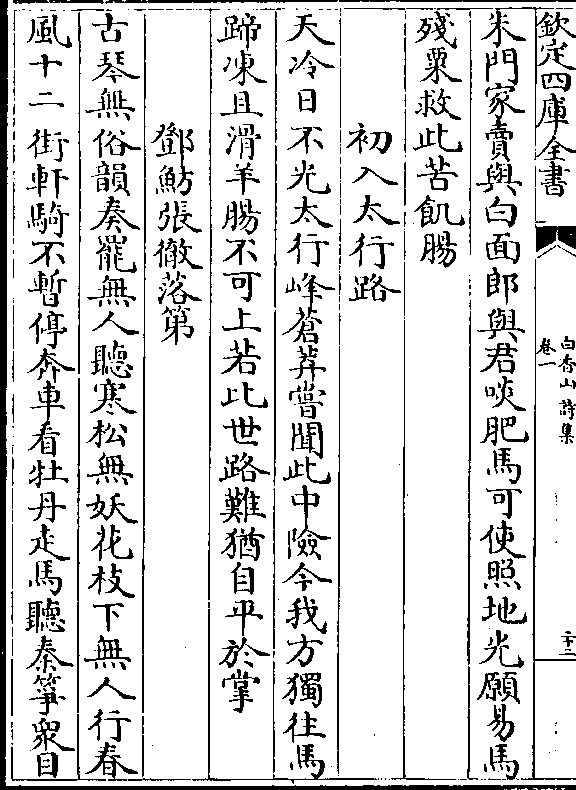 欽定四庫全書
白香山詩集
卷一
二十三
朱門家賣與白面郎與君啖肥馬可使照地光願易馬
殘粟救此苦飢腸
初入太行路
天冷日不光太行峰蒼莽嘗聞此中險今我方獨往馬
蹄凍且滑羊腸不可上若比世路難猶自平於掌
鄧魴張徹落第
古琴無俗韻奏罷無人聽寒松無妖花枝下無人行春
風十二街軒騎不暫停奔車看牡丹走馬聽秦箏衆目